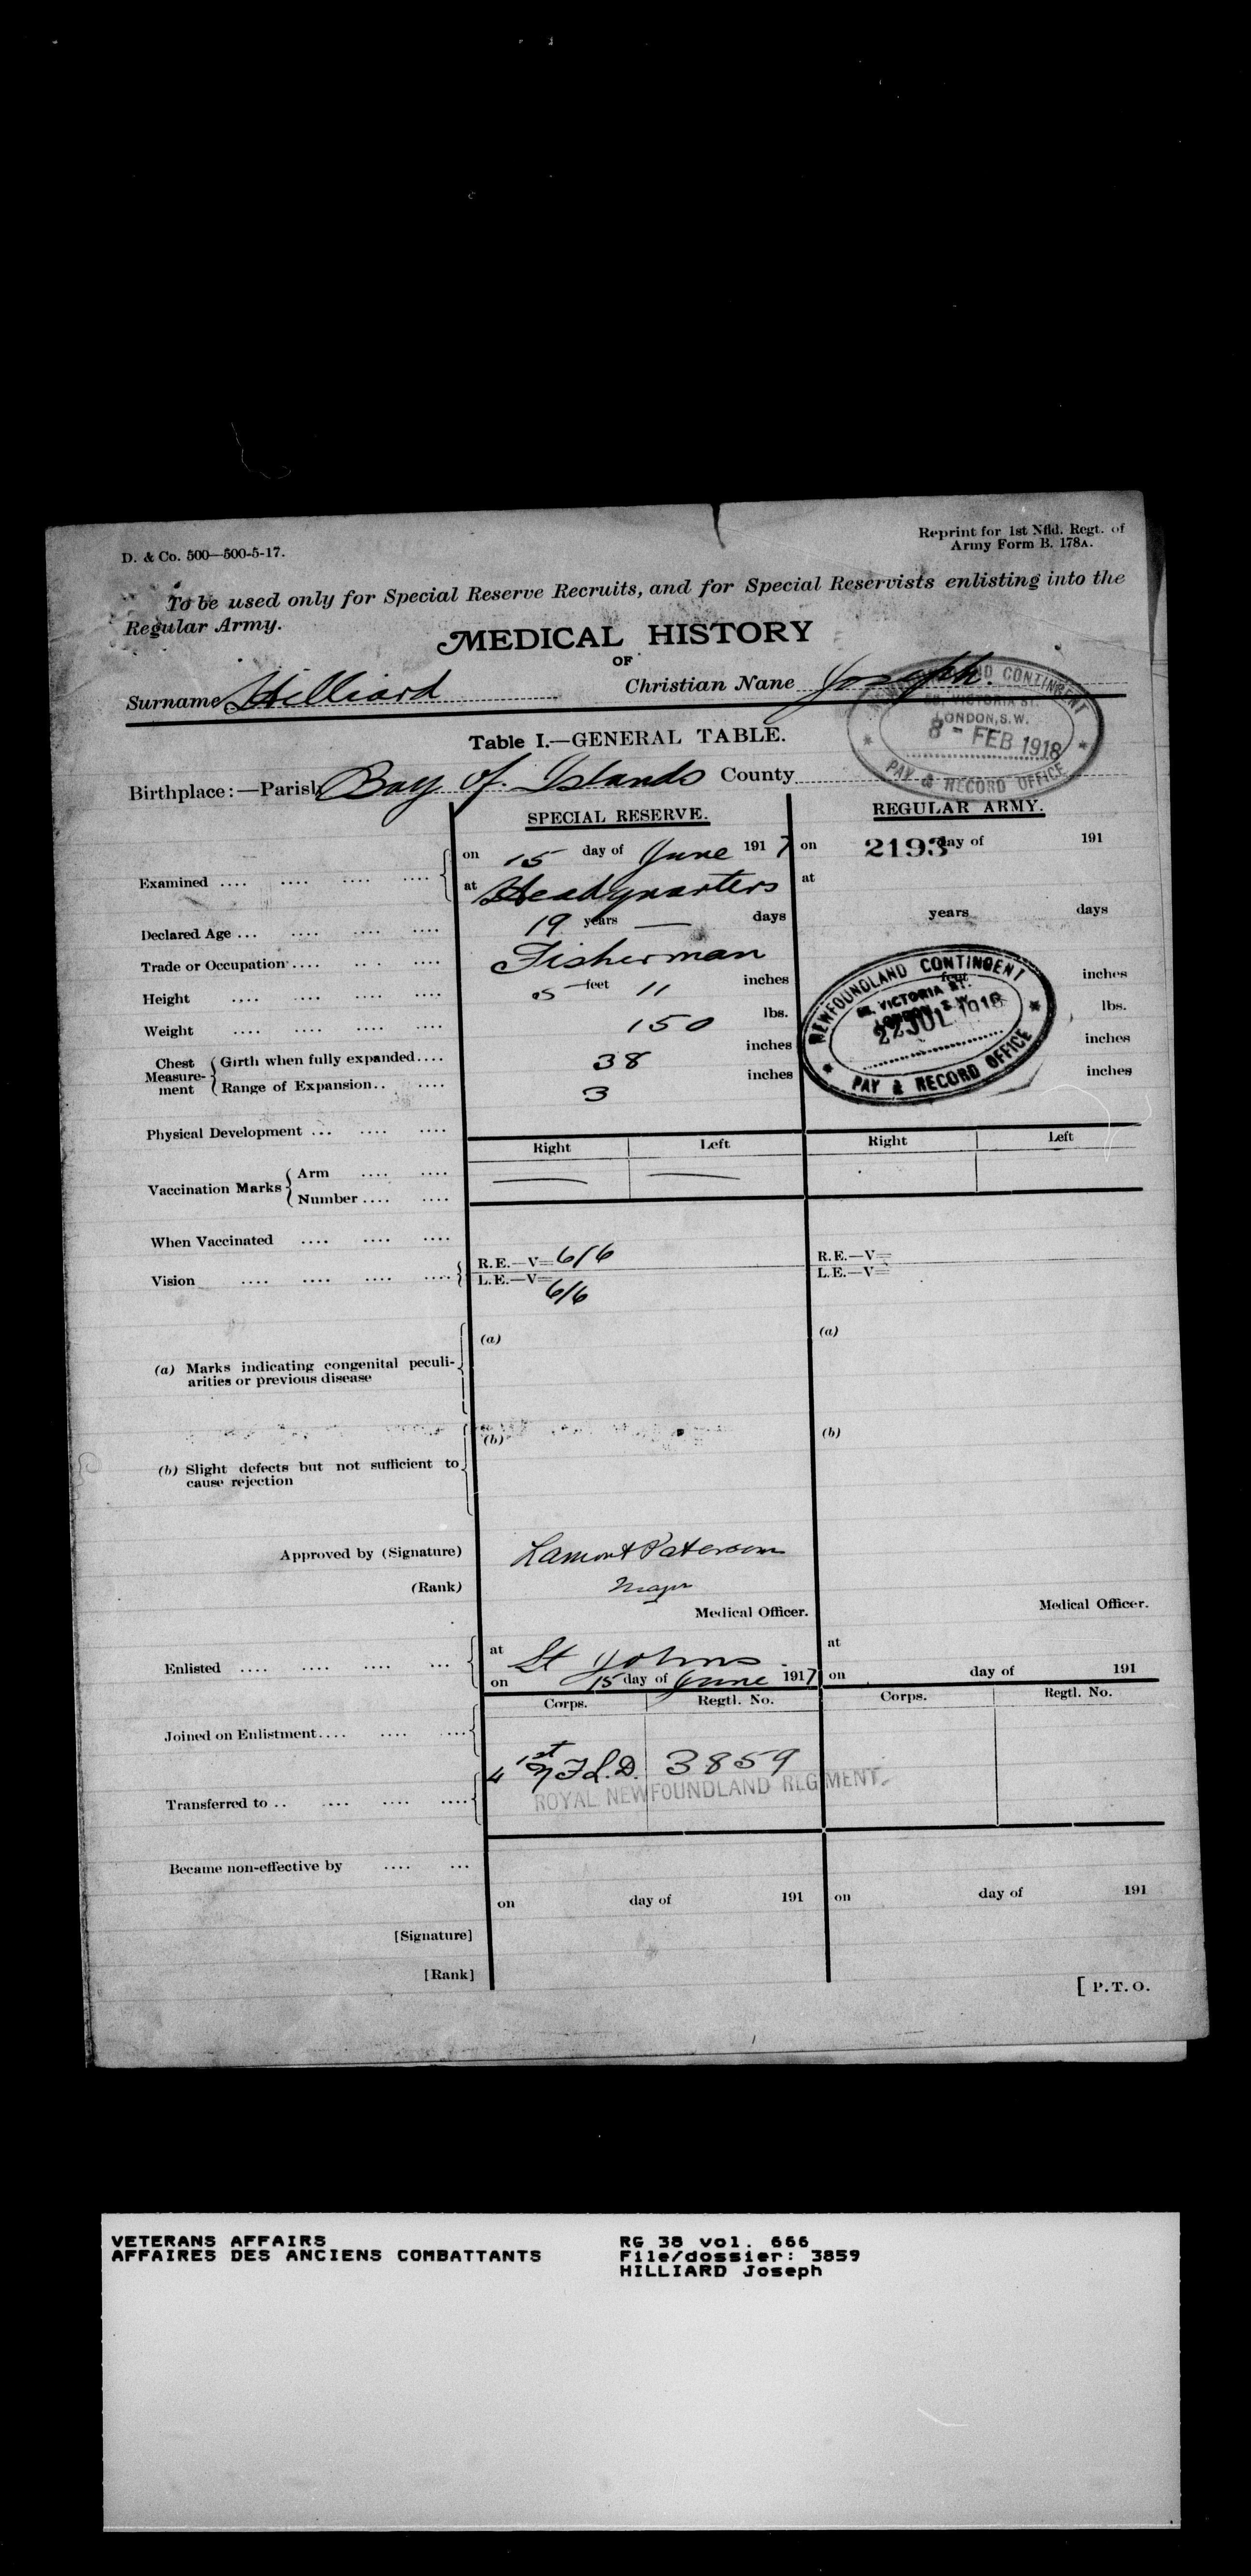 D. & Co. 500—500-5-17.
Reprint for 1st Nfld. Regt. of
Army Form B. 178A.
To be used only for Special Reserve Recruits, and for Special Reservists enlisting into the
Regular Army.
MEDICAL HISTORY
OF
Surname Hilliard Christian Nane Joseph.
NEWFOUNDLAND CONTINGENT
58, VICTORIA ST.
LONDON, S.W.
8 - FEB 1918
PAY & RECORD OFFICE
Table I.—GENERAL TABLE.
Birthplace:—Parish Bay of Islands County
SPECIAL RESERVE. REGULAR ARMY.
Examined .... .... .... .... on 15 day of June 1917 on 2193 day of 191
at Headquarters at
Declared Age ... .... .... .... 19 years — days years days
Trade or Occupation .... .... .... Fisherman
Height .... .... .... .... 5 feet 11 inches feet inches
Weight .... .... .... .... 150 lbs. lbs.
Chest Measure-ment Girth when fully expanded.... 38 inches inches
Range of Expansion.. .... 3 inches inches
NEWFOUNDLAND CONTINGENT
58, VICTORIA ST.
LONDON, S.W.
22 JUL 1918
PAY & RECORD OFFICE
Physical Development ... .... ....
Right Left Right Left
Vaccination Marks Arm .... ....
Number .... ....
When Vaccinated .... .... ....
Vision .... .... .... .... R.E.—V= 6/6 R.E.—V=
L.E.—V= 6/6 L.E.—V=
(a) (a)
(a) Marks indicating congenital peculi-
arities or previous disease
(b) (b)
(b) Slight defects but not sufficient to
cause rejection
Approved by (Signature) Lamont Paterson
(Rank) Major
Medical Officer. Medical Officer.
Enlisted .... .... .... ... at St Johns at
on 15 day of June 1917 on day of 191
Corps. Regtl. No. Corps. Regtl. No.
Joined on Enlistment.... .... ....
1st NFLD. 3859
Transferred to .. .... .... .... ROYAL NEWFOUNDLAND REGIMENT.
Became non-effective by .... ...
on day of 191 on day of 191
[Signature]
[Rank]
[ P.T.O.
VETERANS AFFAIRS RG 38 vol. 666
AFFAIRES DES ANCIENS COMBATTANTS File/dossier: 3859
HILLIARD Joseph